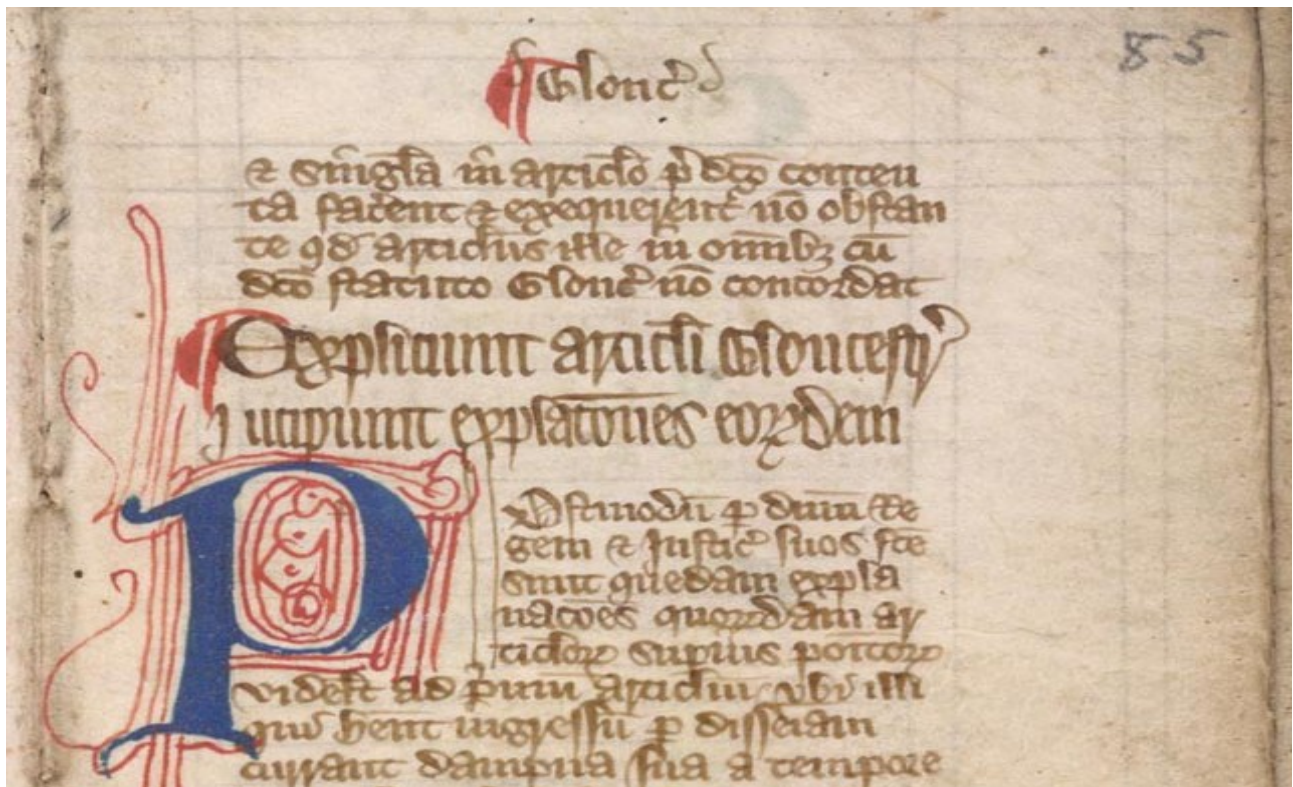 85
¶ Gloucᵉ
⁊ singl̄a in articl̄o p̄dc̄o conten
ta facēent ⁊ exequerentᵉ nō obstan
te qd̄ articl̄us ille in om̄ibꝫ cū
dc̄o statuto Gloucᵉ nō concordat
¶ Expliciunt articl̄i Gloucestrᵉ
Incipiunt explac̄ones eorꝝdem
Postmodū ꝑ dn̄m Re
gem ⁊ Justicᵉ suos fc̄e
sunt quedam expla
nac̄oes quorꝝdam ar
ticl̄orꝝ supius po̅itorꝝ
videl̄t ad p̄mum articl̄m vbi illi
qui hēnt ingressū ꝑ disseiam
currant dampna sua a tempore